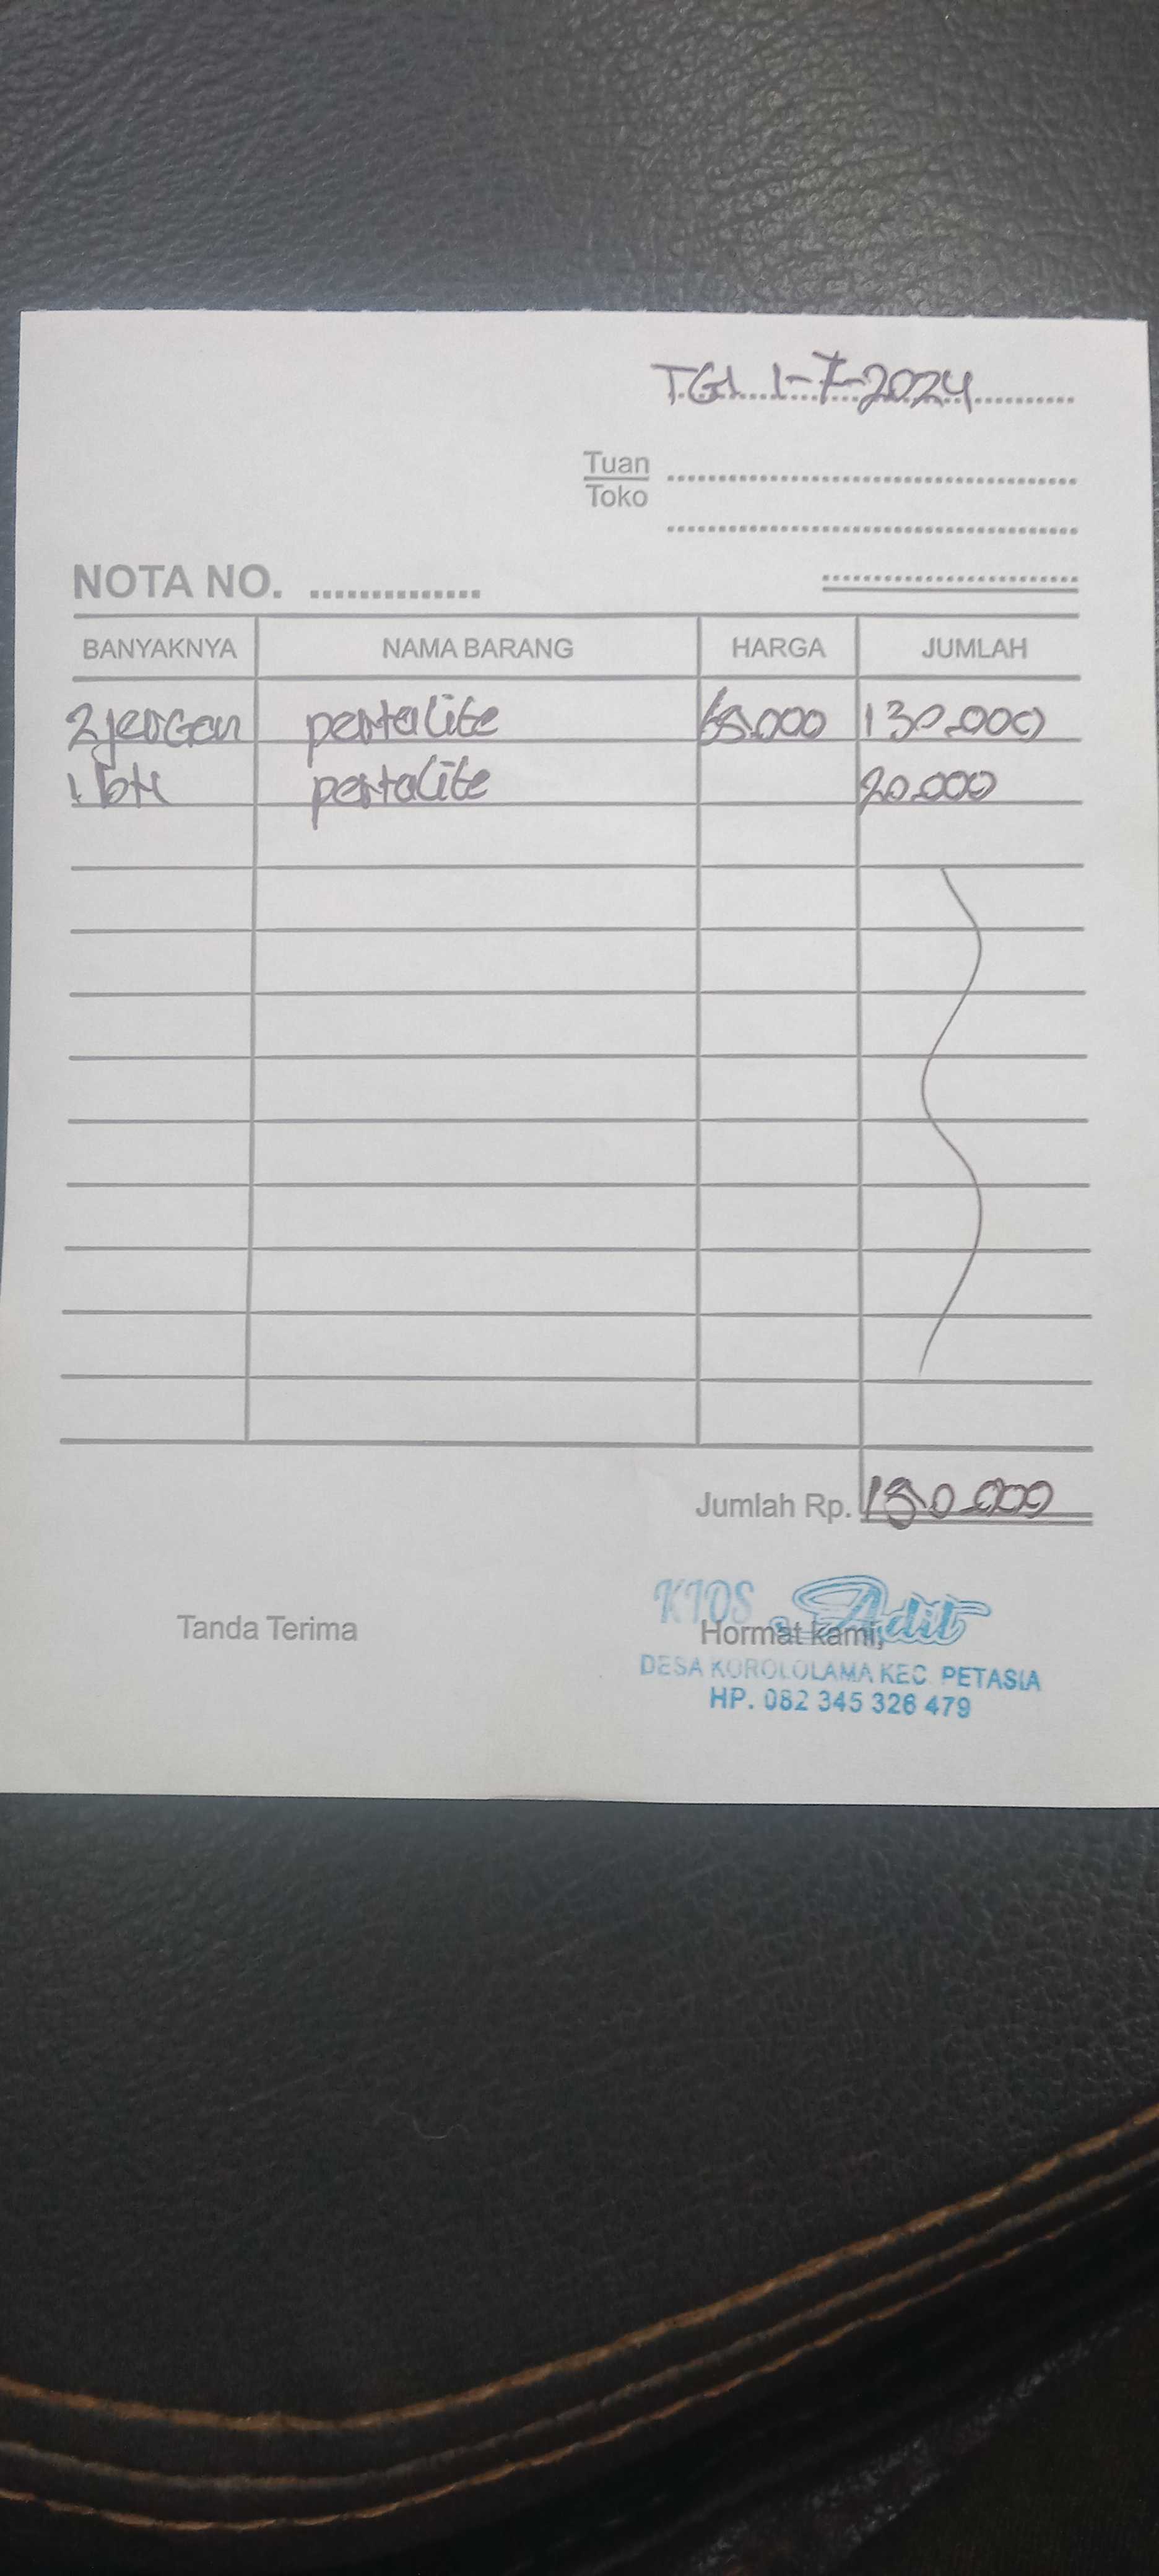 TGl 1-7-2024
Tuan
Toko
NOTA NO.
BANYAKNYA NAMA BARANG HARGA JUMLAH
2 jerigen pertalite 65.000 130.000
1. btl pertalite 20.000
Jumlah Rp. 150.000
Tanda Terima Hormat kami,
KIOS Adit
DESA KOROLOLAMA KEC. PETASIA
HP. 082 345 326 479